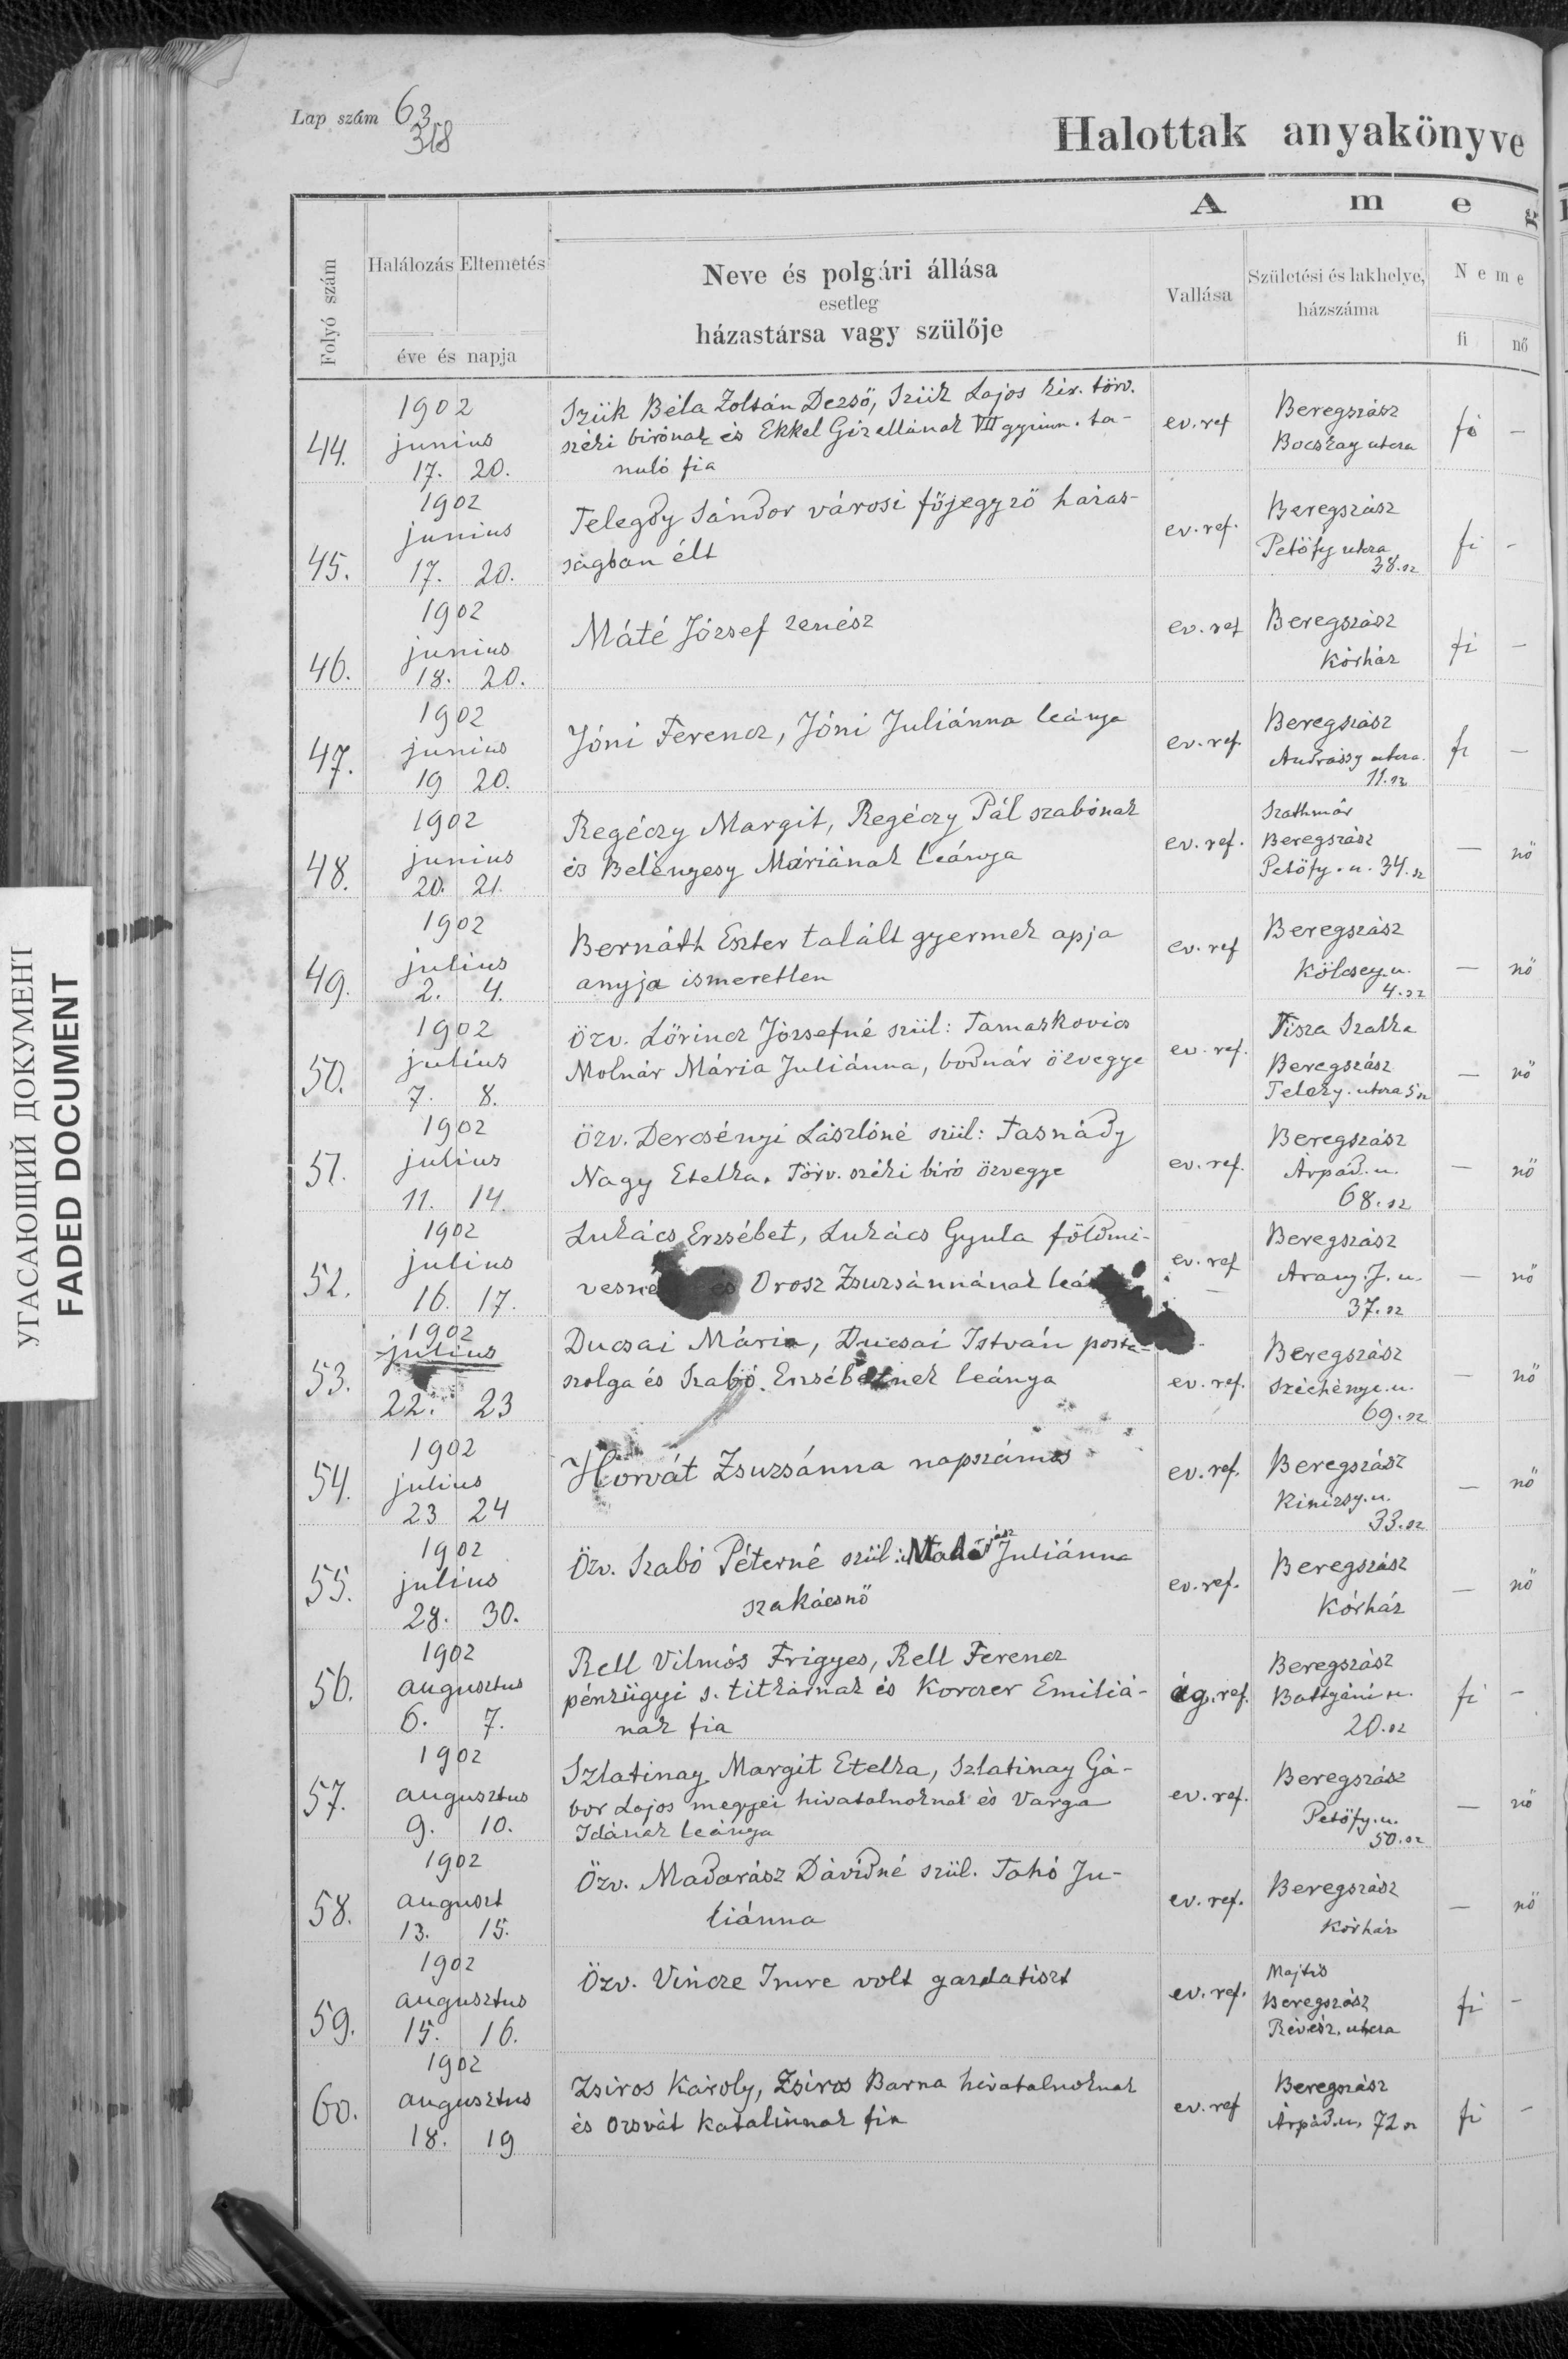 Lap szám 63
318
Halottak anyakönyve
A m e g
Folyó szám
Halálozás Eltemetés
éve és napja
Neve és polgári állása
esetleg
házastársa vagy szülője
Vallása
Születési és lakhelye,
házszáma
Neme
fi nő
44. 1902 junius 17. 20.
Szük Béla Zoltán Dezső, Szük Lajos kir. törv.
széki birónak és Ekkel Gizellának VII gymn. ta-
nuló fia
ev. ref
Beregszász
Bocskay utcza
fi -
45. 1902 junius 17. 20.
Telegdy Sándor városi főjegyző házas-
ságban élt
ev. ref.
Beregszász
Petőfy utcza
38. sz
fi -
46. 1902 junius 18. 20.
Máté József zenész
ev. ref
Beregszász
Kórház
fi -
47. 1902 junius 19 20.
Jóni Ferencz, Jóni Juliánna leánya
ev. ref.
Beregszász
Andrássy utcza.
11. sz
fi -
48. 1902 junius 20. 21.
Regéczy Margit, Regéczy Pál szabónak
és Belényesy Máriának leánya
ev. ref.
Szathmár
Beregszász
Petőfy. u. 34. sz
- nő
49. 1902 julius 2. 4.
Bernáth Eszter talált gyermek apja
anyja ismeretlen
ev. ref
Beregszász
Kölcsey. u.
4. sz
- nő
50. 1902 julius 7. 8.
özv. Lőrincz Józsefné szül: Tamaskovics
Molnár Mária Juliánna, bodnár özvegye
ev. ref.
Tisza Szalka
Beregszász
Teleky. utcza 5 sz
- nő
51. 1902 julius 11. 14.
özv. Dercsényi Lászlóné szül: Tasnády
Nagy Etelka. Törv. széki biró özvegye
ev. ref.
Beregszász
Árpád. u.
68. sz
- nő
52. 1902 julius 16. 17.
Lukács Erzsébet, Lukács Gyula földmi-
vesne és Orosz Zsuzsánnának leá
ev. ref
Beregszász
Arany. J. u.
37. sz
- nő
53. 1902 julius 22. 23
Ducsai Mária, Ducsai István posta-
szolga és Szabó Erzsébetnek leánya
ev. ref.
Beregszász
Széchényi. u.
69. sz
- nő
54. 1902 julius 23 24
Horvát Zsuzsánna napszámos
ev. ref.
Beregszász
Kinizsy. u.
33. sz
- nő
55. 1902 julius 28. 30.
Özv. Szabó Péterné szül: Juliánna
szakácsnő
ev. ref.
Beregszász
Kórház
- nő
56. 1902 augusztus 6. 7.
Rell Vilmós Frigyes, Rell Ferencz
pénzügyi s. titkárnak és Korczer Emiliá-
nak fia
ág. ref.
Beregszász
Battyáni u.
20. sz
fi -
57. 1902 augusztus 9. 10.
Szlatinay Margit Etelka, Szlatinay Gá-
bor Lajos megyei hivatalnoknak és Varga
Idának leánya
ev. ref.
Beregszász
Petőfy. u.
50. sz
- nő
58. 1902 auguszt 13. 15.
Özv. Madarász Dávidné szül. Tahó Ju-
liánna
ev. ref.
Beregszász
Kórház
- nő
59. 1902 augusztus 15. 16.
Özv. Vincze Imre volt gazdatiszt
ev. ref.
Majtis
Beregszász
Révész. utcza
fi -
60. 1902 augusztus 18. 19
Zsiros Károly, Zsiros Barna hivatalnoknak
és Ozsvát Katalinnak fia
ev. ref
Beregszász
Árpád. u. 72 sz
fi -
УГАСАЮЩИЙ ДОКУМЕНТ
FADED DOCUMENT